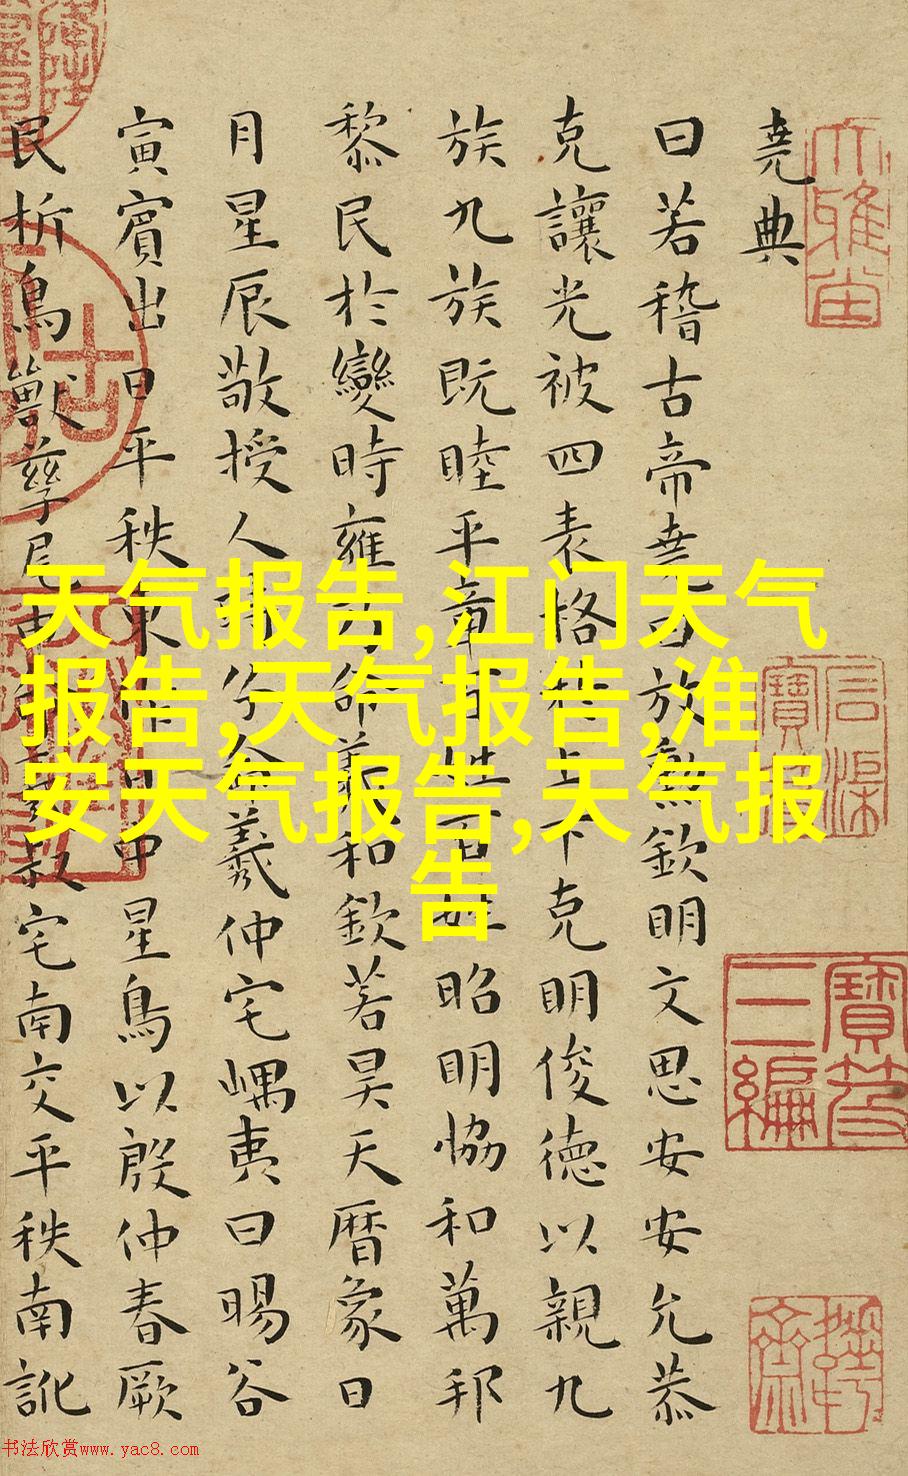 堯典
曰若稽古帝堯曰放勲欽明文思安安允恭
克讓光被四表格於上下克明俊德以親九
族九族既睦平章百姓百姓昭明協和萬邦
黎民於變時雍乃命羲和欽若昊天曆象日
月星辰敬授人時分命羲仲宅嵎夷曰暘谷
寅賓出日平秩東作日中星鳥以殷仲春厥
民析鳥獸孳尾申命羲叔宅南交平秩南訛
寶笈
三編
天气报告,江门天气
报告,天气报告,淮
安天气报告,天气报
告
书法欣赏www.yac8.com